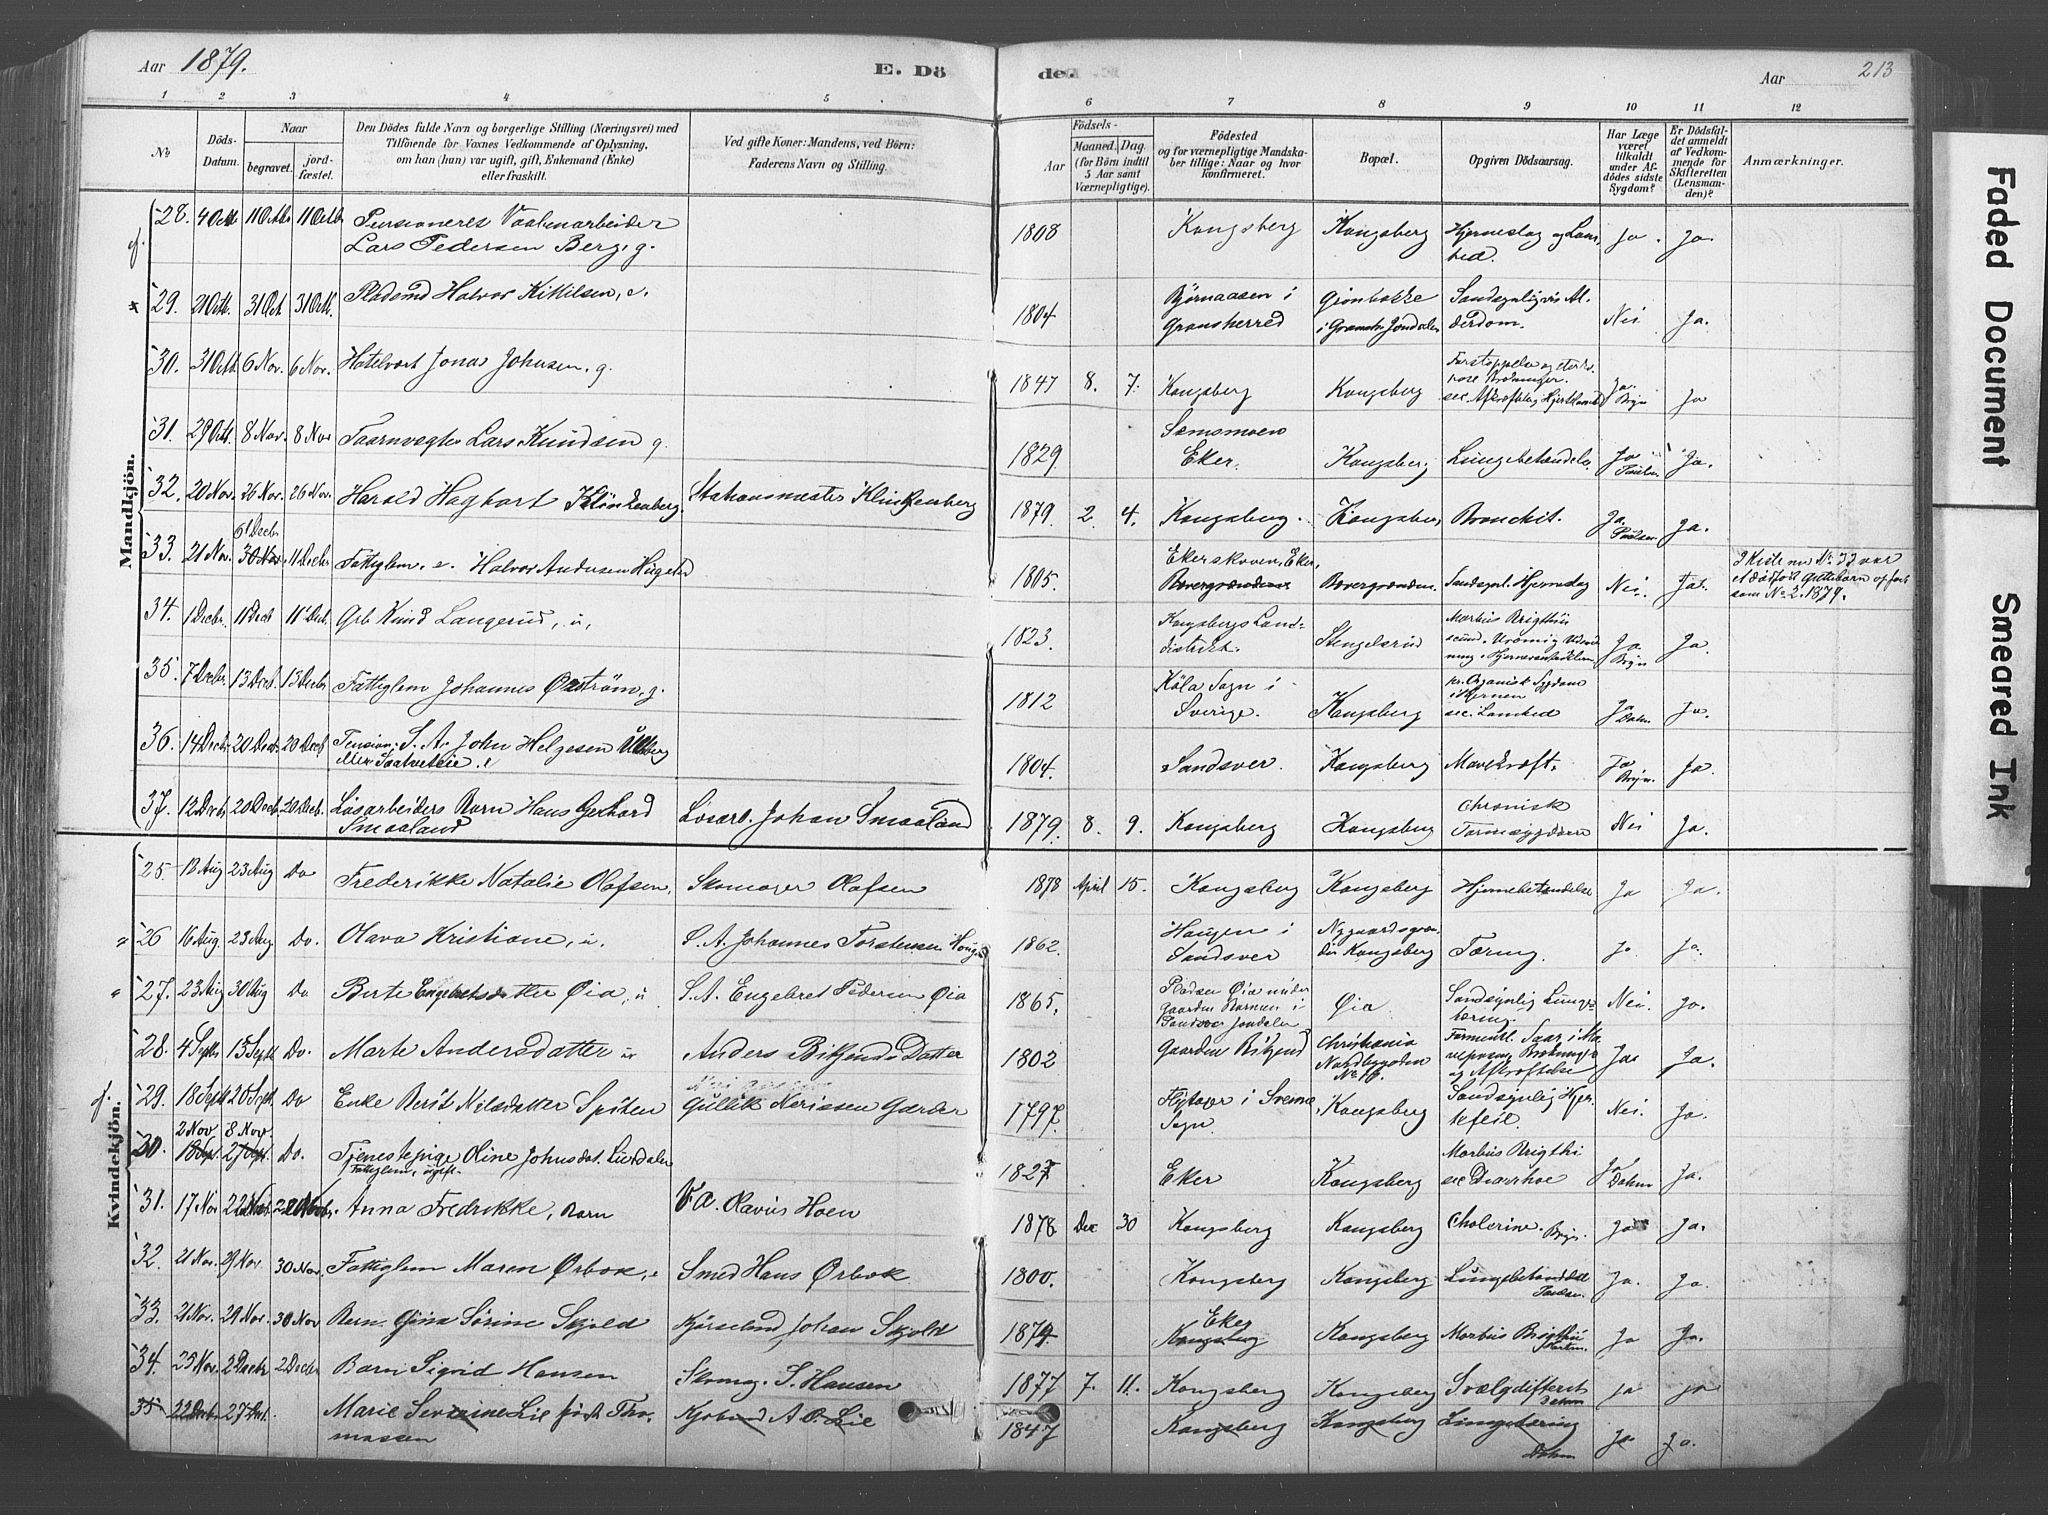 Aar 1879.
E. Dö
de.
Aar
213
1 2 3 4 5 6 7 8 9 10 11 12
№
Döds-
Datum.
Naar
begravet.
jord-
fæstet.
Den Dödes fulde Navn og borgerlige Stilling (Næringsvei) med
Tilföiende for Voxnes Vedkommende af Oplysning,
om han (hun) var ugift, gift, Enkemand (Enke)
eller fraskilt.
Ved gifte Koner: Mandens, ved Börn:
Faderens Navn og Stilling.
Födsels-
Aar
Maaned. Dag.
(for Börn indtil
5 Aar samt
Værnepligtige).
Födested
og for værnepligtige Mandska-
ber tillige: Naar og hvor
konfirmeret.
Bopæl.
Opgiven Dödsaarsag.
Har Læge
været
tilkaldt
under Af-
dödes sidste
Sygdom?
Er Dödsfal-
det anmeldt
af Vedkom-
mende for
Skifteretten
(Lensman-
den)?
Anmærkninger.
Mandkjön.
28. 4 Octb 11 Octb 11 Octb Pensioneret Vaabenarbeider
Lars Pedersen Berg, g. 1808 Kongsberg Kongsberg Hjerneslag og Lam-
hed. Ja. Ja.
29. 21 Octb. 31 Oct 31 Octb. Pladsmd Halvor Kittilsen, e. 1804 Bjørnaasen i
Gransherred Grønbakke
i Gransh. Jondalen Sandsynligvis Al-
derdom. Nei Ja.
30. 31 Octb 6 Nov. 6 Nov. Hotelvært Jonas Johnsen, g. 1847 8. 7. Kongsberg Kongsberg Forstoppelse og
sec. Afkræftelse, Ja. Ja
31. 29 Octb. 8 Nov. 8 Nov Taarnvægter Lars Knudsen g. 1829 Semsmoen
Eker. Kongsberg Lungebetændelse Ja Ja.
32. 20 Nov. 26 Nov. 26 Nov. Harald Hagbart Klinkenberg. Stationsmester Klinkenberg 1879. 2. 4. Kongsberg. Kongsberg Bronchit. Ja. Paulsen. Ja.
33. 21 Nov. 6 Decbr 30 Nov. 11 Decbr Fattiglem, e. Halvor Andersen 1805. Ekerskoven, Eker,
Bævergrænden Bævergrænden Sandsynl. Hjerneslag Nei. Ja. I Kiste med No 33 var
et dødfødt Guttebarn opført
som No 2. 1879.
34. 1 Decbr. 11 Decb 11 Decb. Grb Knud Langerud, u, 1823. Kongsbergs Land-
distrikt. Stengelsrud Morbus Brigthii
Ja. Ja.
35. 7 Decbr. 13 Decb. 13 Decbr Fattiglem Johannes Øström, g. 1812 Köla Sogn i
Sverige. Kongsberg pr. Organisk Sygdom
i Hjernen
sec. Lamhed Ja Dahm. Ja.
36. 14 Decbr 20 Decb. 20 Decb Pension. S. A. John Helgesen
Saatveteie. e 1804. Sandsver. Kongsberg Mavekræft. Ja Ja.
37. 12 Decbr 20 Decb. 20 Decb. Løsarbeiders Barn Hans Gerhard
Smaaland Løsarb. Johan Smaaland 1879. 8. 9. Kongsberg Kongsberg Chronisk
Tarmsygdom Nei Ja.
Kvindekjön.
25. 18 Aug 23 Aug Do Frederikke Natalie Olafsen, Skomager Olafsen 1878 April 15. Kongsberg Kongsberg Hjernebetændelse Ja Ja.
26 16 Aug. 23 Aug Do. Olava Kristiane, u. S. A. Johannes Torstensen 1862. Haugen i
Sandsver Nygaardsgra-
den Kongsberg Tæring. Ja Ja.
27. 23 Aug 30 Aug Do Berte Engebretsdatter Øia, u S. A. Engebret Pedersen Øia 1865. Pladsen Øia under
Gaarden Bornen i
Sandsver Jondalen Øia Sandsynlig Lunge-
tæring. Nei. Ja.
28. 4 Septb 13 Septb Do. Marte Andersdatter u Anders Bikjends Datter 1802 Gaarden Bikjend Christiania
No 16.
og Afkræftelse Ja Ja.
29. 18 Septb 20 Septb Do Enke Berit Nilsdatter Spiten Gullik Garber 1797. Flytaver i Svene
Sogn. Kongsberg Sandsynlig Hjer-
tefeil. Nei. Ja.
30. 2 Nov 8 Nov. 18 Spt. 27 Spt. Do. Tjenestepige Oline Johnsdat. Lurdalen
Fattiglem, ugift. 1827. Eker Kongsberg Morbus Brigthi
sec Diarrhoe Ja Dahm Ja.
31. 17 Nov 22 Nov 22 Novb. Anna Fredrikke, Barn V. A. Olavus Hoen 1878 Dec 30 Kongsberg Kongsberg Cholerine. Ja Ja.
32. 21 Nov. 29 Nov. 30 Nov. Fattiglem Maren Ørbok, e Smed Hans Ørbok 1800. Kongsberg Kongsberg Lungebetændelse Paulsen. Ja. Ja.
33. 21 Nov. 29 Nov. 30 Nov Barn Gina Sörine Skjold Kjørselmd Johan Skjold 1874. Eker
Kongsberg Kongsberg Morbus Brigthii Ja Ja.
34. 25 Nov. 2 Decbr 2 Decbr Barn Sigrid Hansen Skomag. S. Hansen 1877 7. 11. Kongsberg Kongsberg Svælgdifterit Dahm ja ja
35 22 Decbr 27 Dcb. Marie Severine Lie født Tho-
massen Kjøbmd A. O. Lie 1847 Kongsberg Kongsberg Lungetæring Dahm Ja Ja.
Faded Document
Smeared Ink